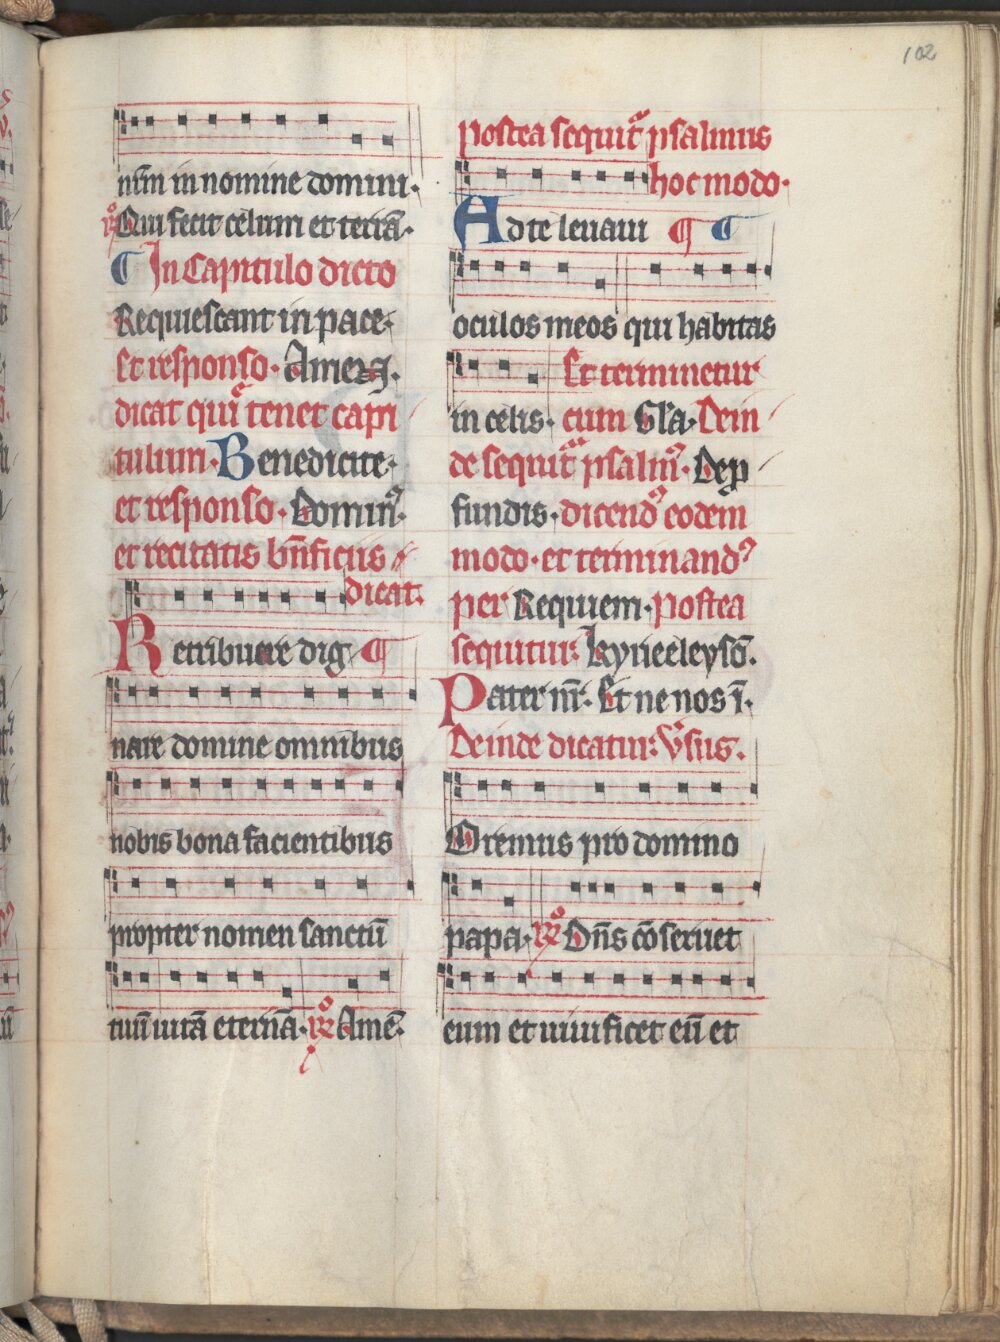 102
nr̄m in nomine domini·
R̷ Qui fecit celum et terrā·
¶ In Capitulo dicto
Requiescant in pace·
Et responso· Amen·
dicat qui tenet capi
tulum· Benedicite·
et responso· Domin̄·
et recitatis bn̄ficiis
dicat·
Retribuere dig ¶
nare domine omnibus
nobis bona facientibus
propter nomen sanctū
tuū uitā eternā· R̷ Amē·
postea sequit̄ psalmus
hoc modo·
Ad te leuaui ¶ ¶
oculos meos qui habitas
Et terminetur
in celis· cum Gl̄a· Dein
de sequit̄ psalm̄· De p
fundis· dicend⁹ eodem
modo· et terminand⁹
per Requiem· postea
sequitur· kyrieeleysō·
Pater nr̄· Et ne nos ī·
Deinde dicatur: V̄sus·
Oremus pro domino
papa· R̷ Dn̄s cōseruet
eum et uiuificet eū et